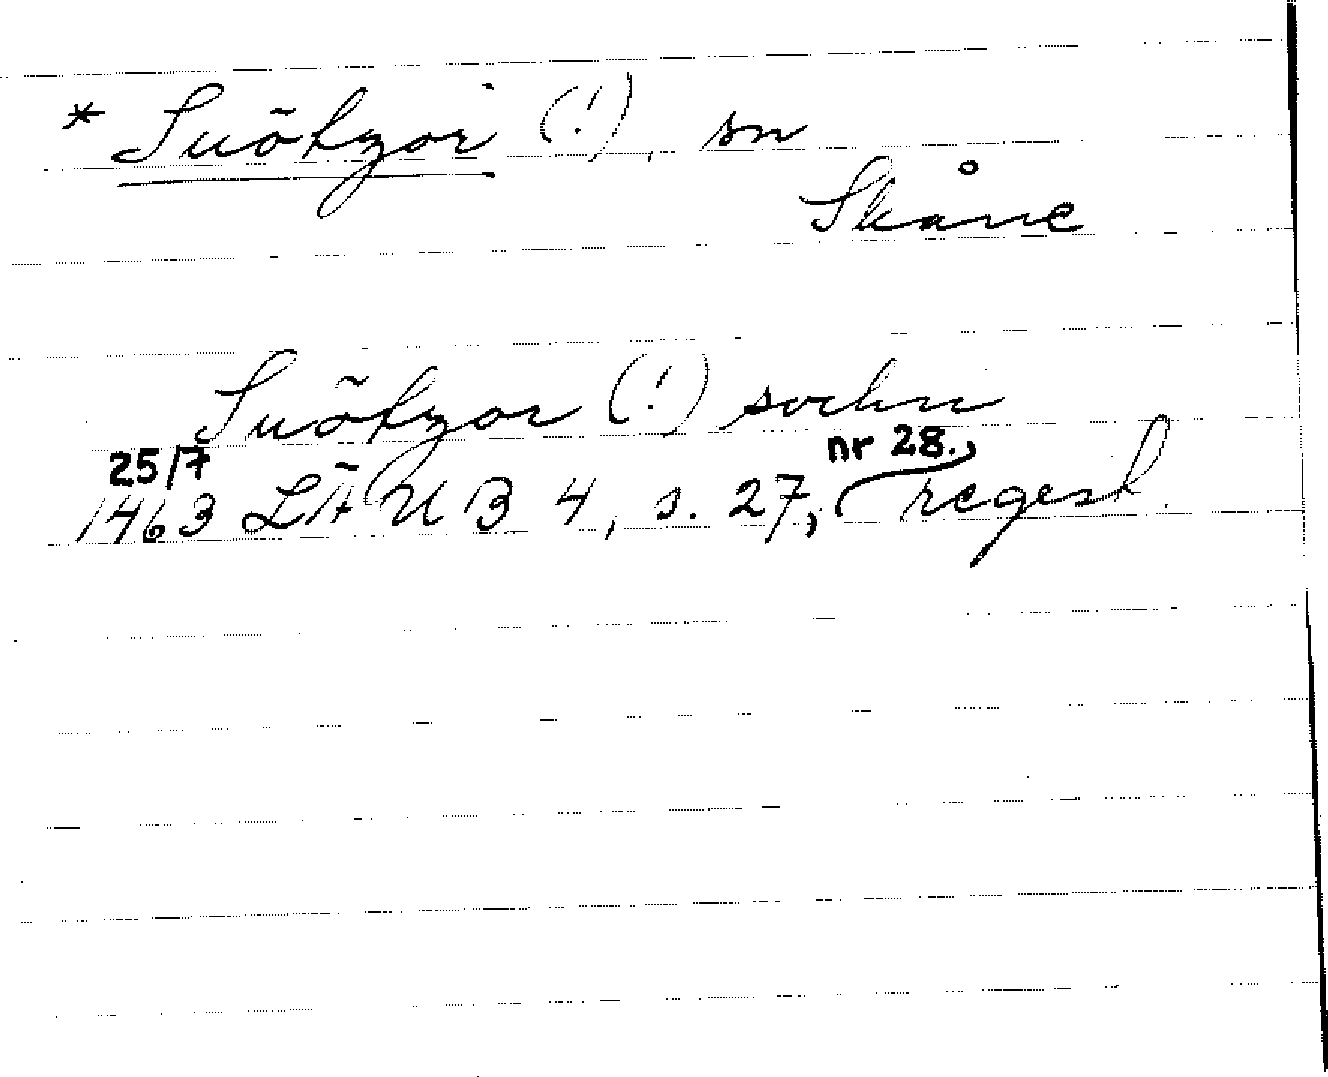 * Suötzor (!), sn
Skåne
Suötzor (!) sochn
25/7 nr 28.,
1463 LÄUB 4, s. 27, regest.